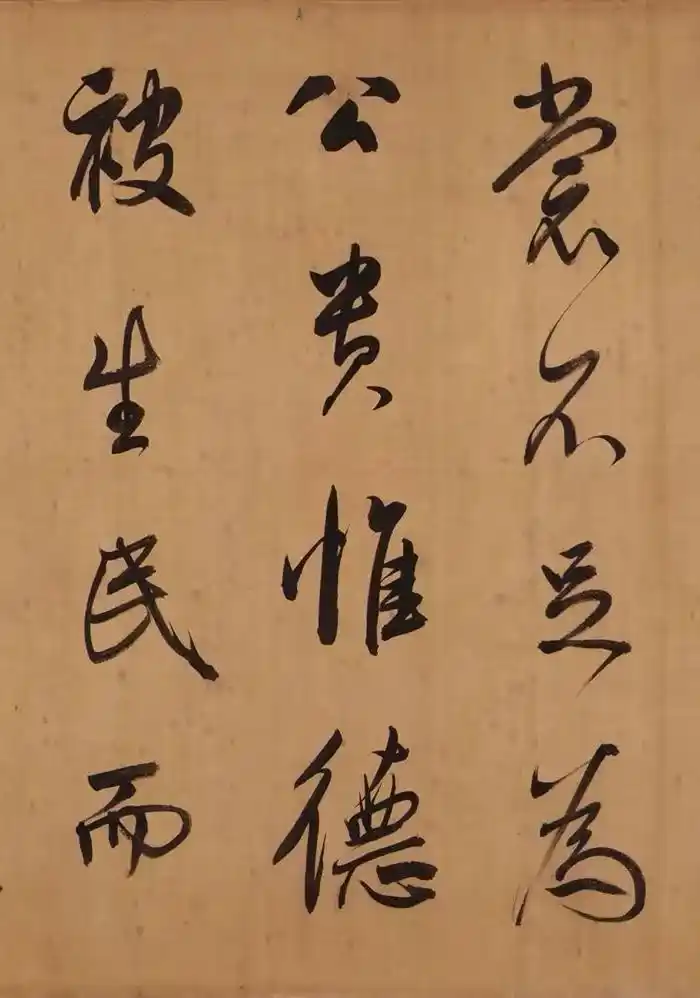 裳不足为
公貴惟德
被生民而